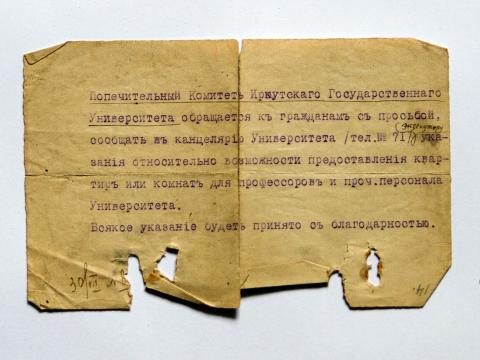 Попечительный Комитетъ Иркутскаго Государственнаго
Университета обращается къ гражданамъ съ просьбой,
сообщать въ канцелярію Университета /тел.№ 71/ ука-
занія относительно возможности предоставленія квар-
тиръ или комнатъ для профессоровъ и проч.персонала
Университета.
Всякое указаніе будетъ принято съ благодарностью.
30/VII
14.